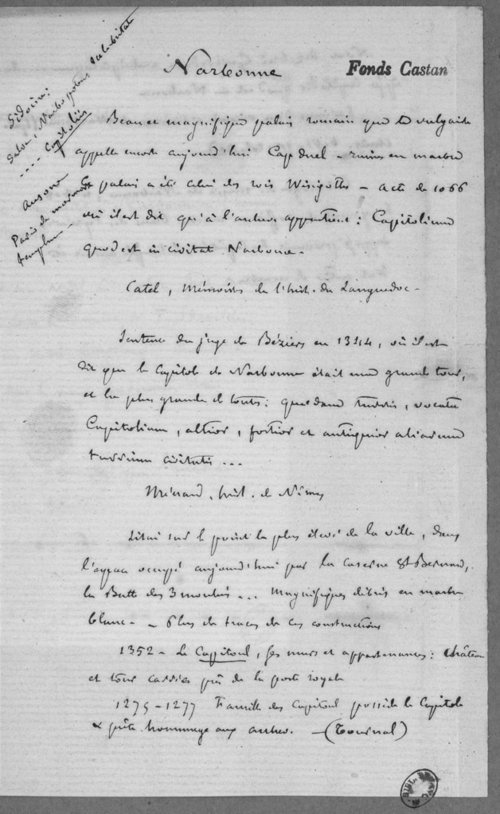 Narbonne
Fonds Castan
Sidoine:
Salve Narbo potens salubritate
.... Capitoliis
Ausone
Paros de marmore
templum
Beau et magnifique palais romain que le vulgaire
appelle encore aujourd'hui Capduel - ruines en marbre
Ce palais a été celui des rois Wisigoths - acte de 1066
où il est dit qu'à l'archev. appartient: Capitolium
quod est in civitat Narbone.
Catel, Mémoires de l'hist. du Languedoc.
Sentence du juge de Béziers en 1344, où il est
dit que le Capitole de Narbonne était une grande tour,
et la plus grande de toutes: quaedam turris, vocata
Capitolium, altior, fortior et antiquior aliarum
turrium civitatis ...
Ménard, hist. de Nîmes
Situé sur le point le plus élevé de la ville, dans
l'espace occupé aujourd'hui par la caserne St Bernard,
la Butte des 3 moulins ... Magnifiques débris en marbre
blanc. - Plus de traces de ces constructions
1352 - Le Capitoul, ses murs et appartenances: château
et tour carrée près de la porte royale
1275-1277 Famille des Capitoul possède le Capitole
& prête hommage aux archev. - (Tournal)